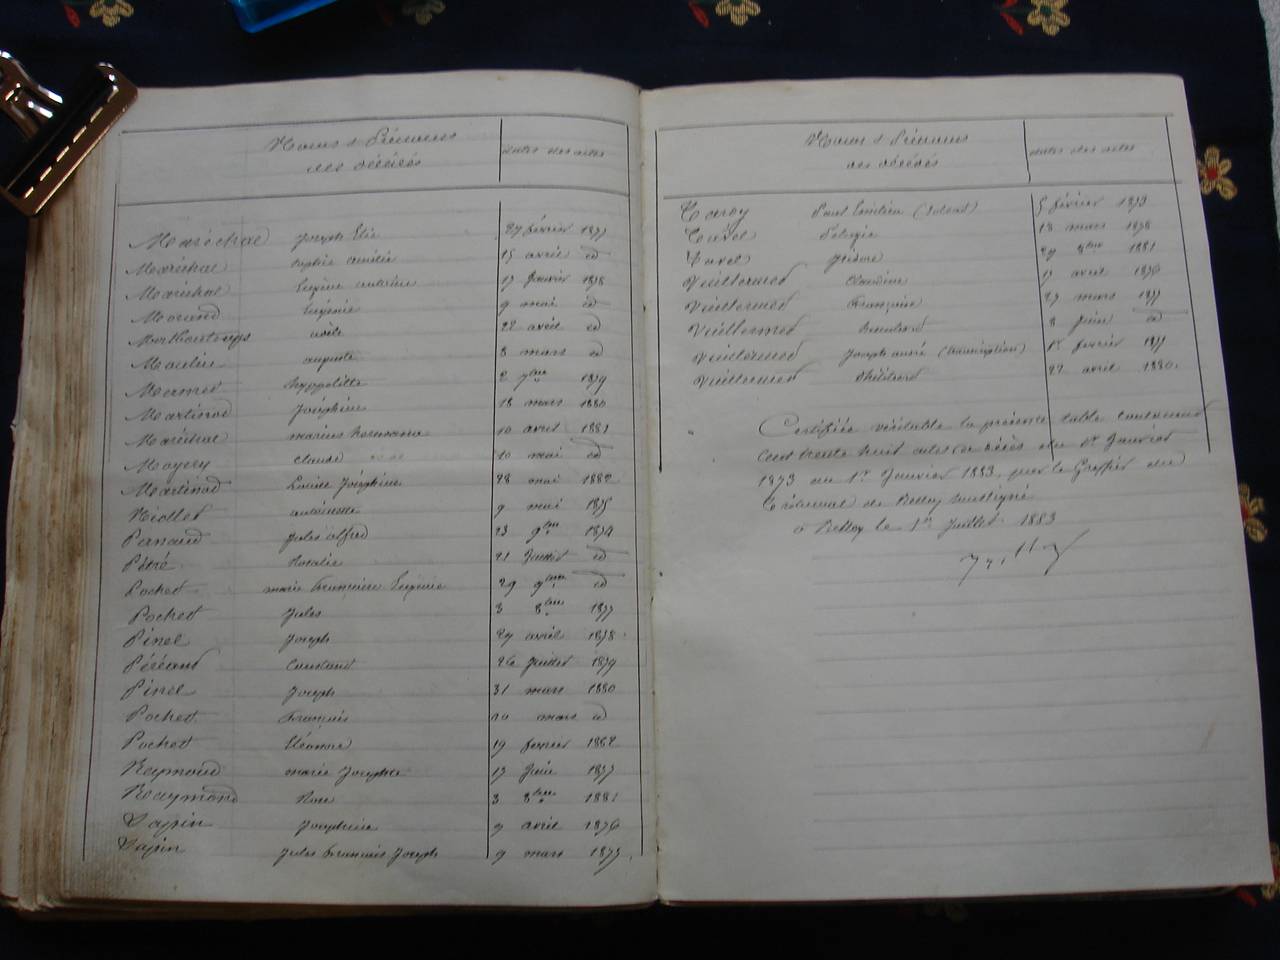 Noms & Prénoms
des décédés
dates des actes
Maréchal Joseph Elie 27 février 1877
Maréchal Sophie Amélie 15 avril id
Maréchal Eugène 17 Janvier 1878
Morand Eugénie 9 mai id
Adèle 22 avril id
Maulin auguste 8 mars id
Mermet hyppolitte 2 7bre 1879
Martinod Joséphine 18 mars 1880
Maréchal marius 10 avril 1881
Claude 10 mai id
Martinod Louise Joséphine 28 mai 1882
Niollet antoinette 9 mai 1875
Pernaud Jules alfred 23 9bre 1874
Pétré Rosalie 21 Juillet id
Pochet marie Françoise Eugénie 29 id
Pochet Jules 3 8bre 1877
Pinel Joseph 27 avril 1878
Péréaud Constant 26 Juillet 1879
Pinel Joseph 31 mars 1880
Pochet François mars id
Pochet Eléonore 19 février 1882
Raymond marie Josephte 17 Juin 1877
Raymond Rose 3 8bre 1881
Sapin Josephine 9 avril 1876
Sapin Jules François Joseph 9 mars 1875
Noms & Prénoms
des décédés
dates des actes
Paul Emilien 5 février 1873
Tavel Pélagie 18 mars 1878
Tavel Isidore 29 8bre 1881
Vuillermod Claudine 17 avril 1876
Vuillermod Françoise 27 mars 1877
Vuillermod 8 Juin id
Vuillermod Joseph André (transcription) 1er février 1877
Vuillermod 22 avril 1880.
Certifiée véritable la présente table contenant
Cent trente huit actes de décès du 1er Janvier
1873 au 1er Janvier 1883, par le Greffier du
Tribunal de Belley soussigné
à Belley le 1er Juillet 1883